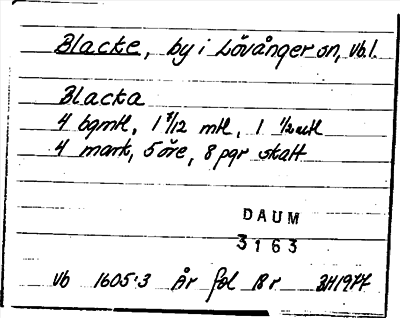 Blacke, by i Lövånger sn, Vb.l.
Blacka
4 bgmtl, 1 7/12 mtl, 1 1/2 mtl
4 mark, 5 öre, 8 pgr skatt
DAUM
3163
Vb 1605:3 År fol 18 r BH1977